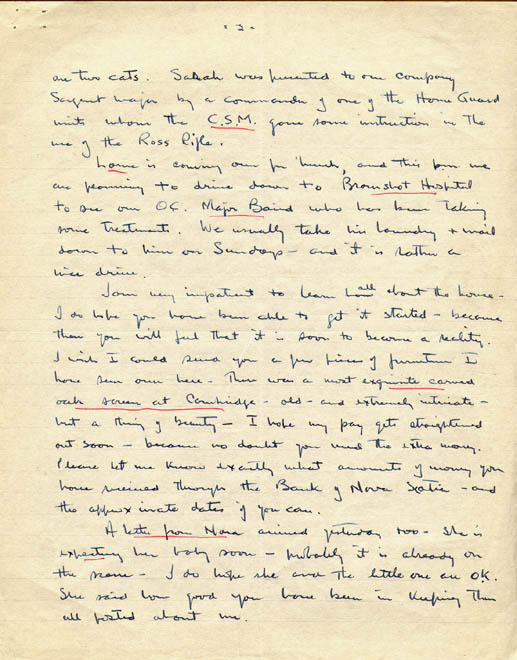 - 2 -
are two cats. Sarah was presented to our Company
Sargent Major by a commander of one of the Home Guard
units whom the C.S.M. gave some instruction in the
use of the Ross Rifle.
Lorne is coming over for lunch, and this p.m. we
are planning to drive down to Bramshot Hospital
to see our O.C. Major Baird who has been taking
some treatments. We usually take his laundry + mail
down to him on Sundays - and it is rather a
nice drive.
I am very impatient to learn how all about the house -
I do hope you have been able to get it started - because
then you will feel that it is soon to become a reality.
I wish I could send you a few pieces of furniture I
have seen over here - There was a most exquisite carved
oak screen at Cambridge - old - and extremely intricate -
but a thing of beauty - I hope my pay gets straightened
out soon - because no doubt you need the extra money.
Please let me know exactly what amounts of money you
have received through the Bank of Nova Scotia - and
the approximate dates if you can.
A letter from Nora arrived yesterday too - She is
expecting her baby soon - probably it is already on
the scene - I do hope she and the little one are O.K.
She said how good you have been in keeping them
all posted about me.